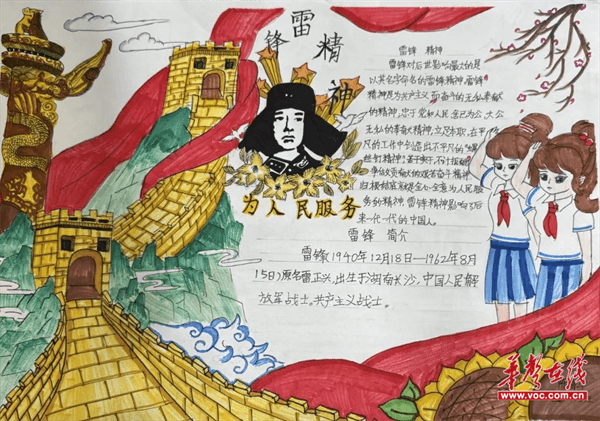 雷锋精神
为人民服务
雷锋 精神
雷锋对后世影响最大的是
以其名字命名的雷锋精神,雷锋
精神是为共产主义而奋斗的无私奉献
的精神,忠于党和人民、舍己为公、大公
无私的奉献精神,立足本职、在平
凡的工作中创造出不平凡的"螺
丝钉精神";苦干实干、不计报酬、
争做贡献的艰苦奋斗精神
归根结底就是全心全意为人民服
务的精神,雷锋精神影响了后
来一代一代的中国人.
雷锋 简介
雷锋1940年12月18日—1962年8月
15日)原名雷正兴,出生于湖南长沙,中国人民解
放军战士,共产主义战士。
华声在线
www.voc.com.cn